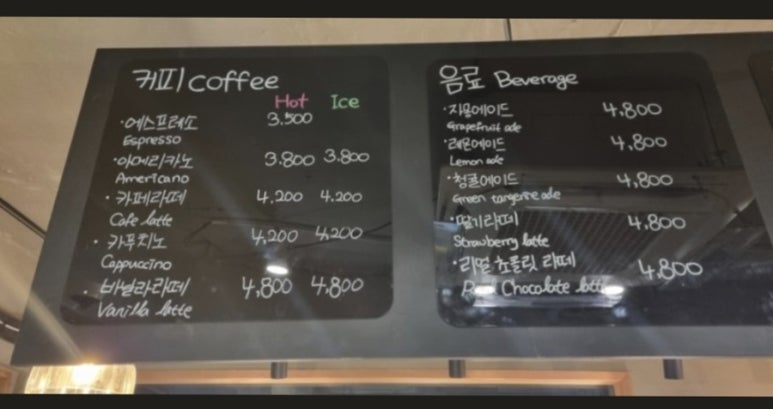 커피 coffee
Hot Ice
·에스프레소 3.500
Espresso
·아메리카노 3.800 3.800
Americano
·카페라떼 4,200 4.200
Cafe latte
·카푸치노 4,200 4,200
Cappuccino
·바닐라라떼 4,800 4,800
Vanilla latte
음료 Beverage
·자몽에이드 4,800
Grapefruit ade
·레몬에이드 4,800
Lemon ade
·청귤에이드 4,800
Green tangerine ade
·딸기라떼 4,800
Strawberry latte
·리얼 초콜릿 라떼 4,800
Chocolate latte